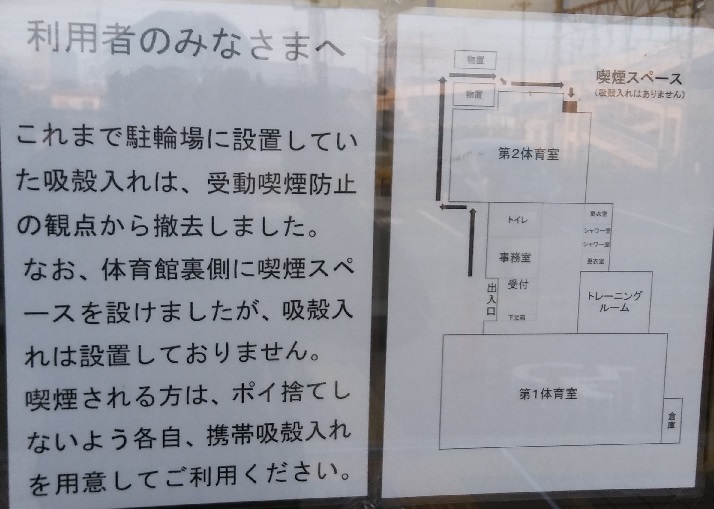 利用者のみなさまへ
これまで駐輪場に設置してい
た吸殻入れは、受動喫煙防止
の観点から撤去しました。
なお、体育館裏側に喫煙スペ
ースを設けましたが、吸殻入
れは設置しておりません。
喫煙される方は、ポイ捨てし
ないよう各自、携帯吸殻入れ
を用意してご利用ください。
物置
物置
喫煙スペース
(吸殻入れはありません)
第2体育室
トイレ
事務室
受付
出入口
下足箱
更衣室
シャワー室
シャワー室
更衣室
トレーニング
ルーム
第1体育室
倉庫